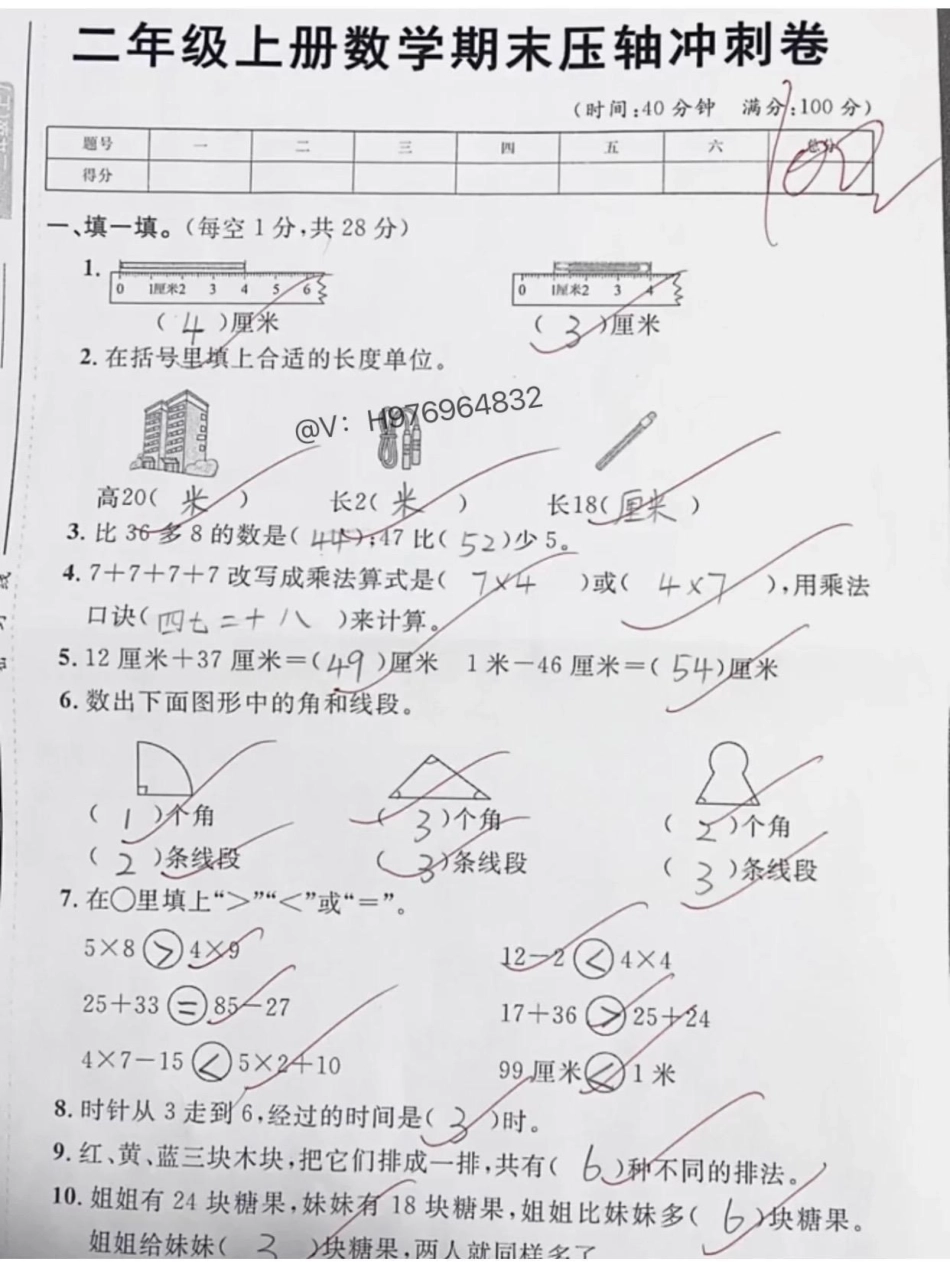 二年级上册数学期末压轴冲刺卷
(时间:40分钟 满分:100分)
题号 一 二 三 四 五 六 总分
得分
100
一、填一填。(每空1分,共28分)
1.
0 1厘米2 3 4 5 6 0 1厘米2 3 4
( 4 )厘米 ( 3 )厘米
2. 在括号里填上合适的长度单位。
@V：H976964832
高20( 米 ) 长2( 米 ) 长18( 厘米 )
3. 比36多8的数是( 44 );47比( 52 )少5。
4. 7+7+7+7改写成乘法算式是( 7×4 )或( 4×7 ),用乘法
口诀( 四七二十八 )来计算。
5. 12厘米+37厘米=( 49 )厘米 1米-46厘米=( 54 )厘米
6. 数出下面图形中的角和线段。
( 1 )个角 ( 3 )个角 ( 2 )个角
( 2 )条线段 ( 3 )条线段 ( 3 )条线段
7. 在○里填上“>”“<”或“=”。
5×8 > 4×9 12-2 < 4×4
25+33 = 85-27 17+36 > 25+24
4×7-15 < 5×2+10 99厘米 < 1米
8. 时针从3走到6,经过的时间是( 3 )时。
9. 红、黄、蓝三块木块,把它们排成一排,共有( 6 )种不同的排法。
10. 姐姐有24块糖果,妹妹有18块糖果,姐姐比妹妹多( 6 )块糖果。
姐姐给妹妹( 3 )块糖果,两人就同样多了